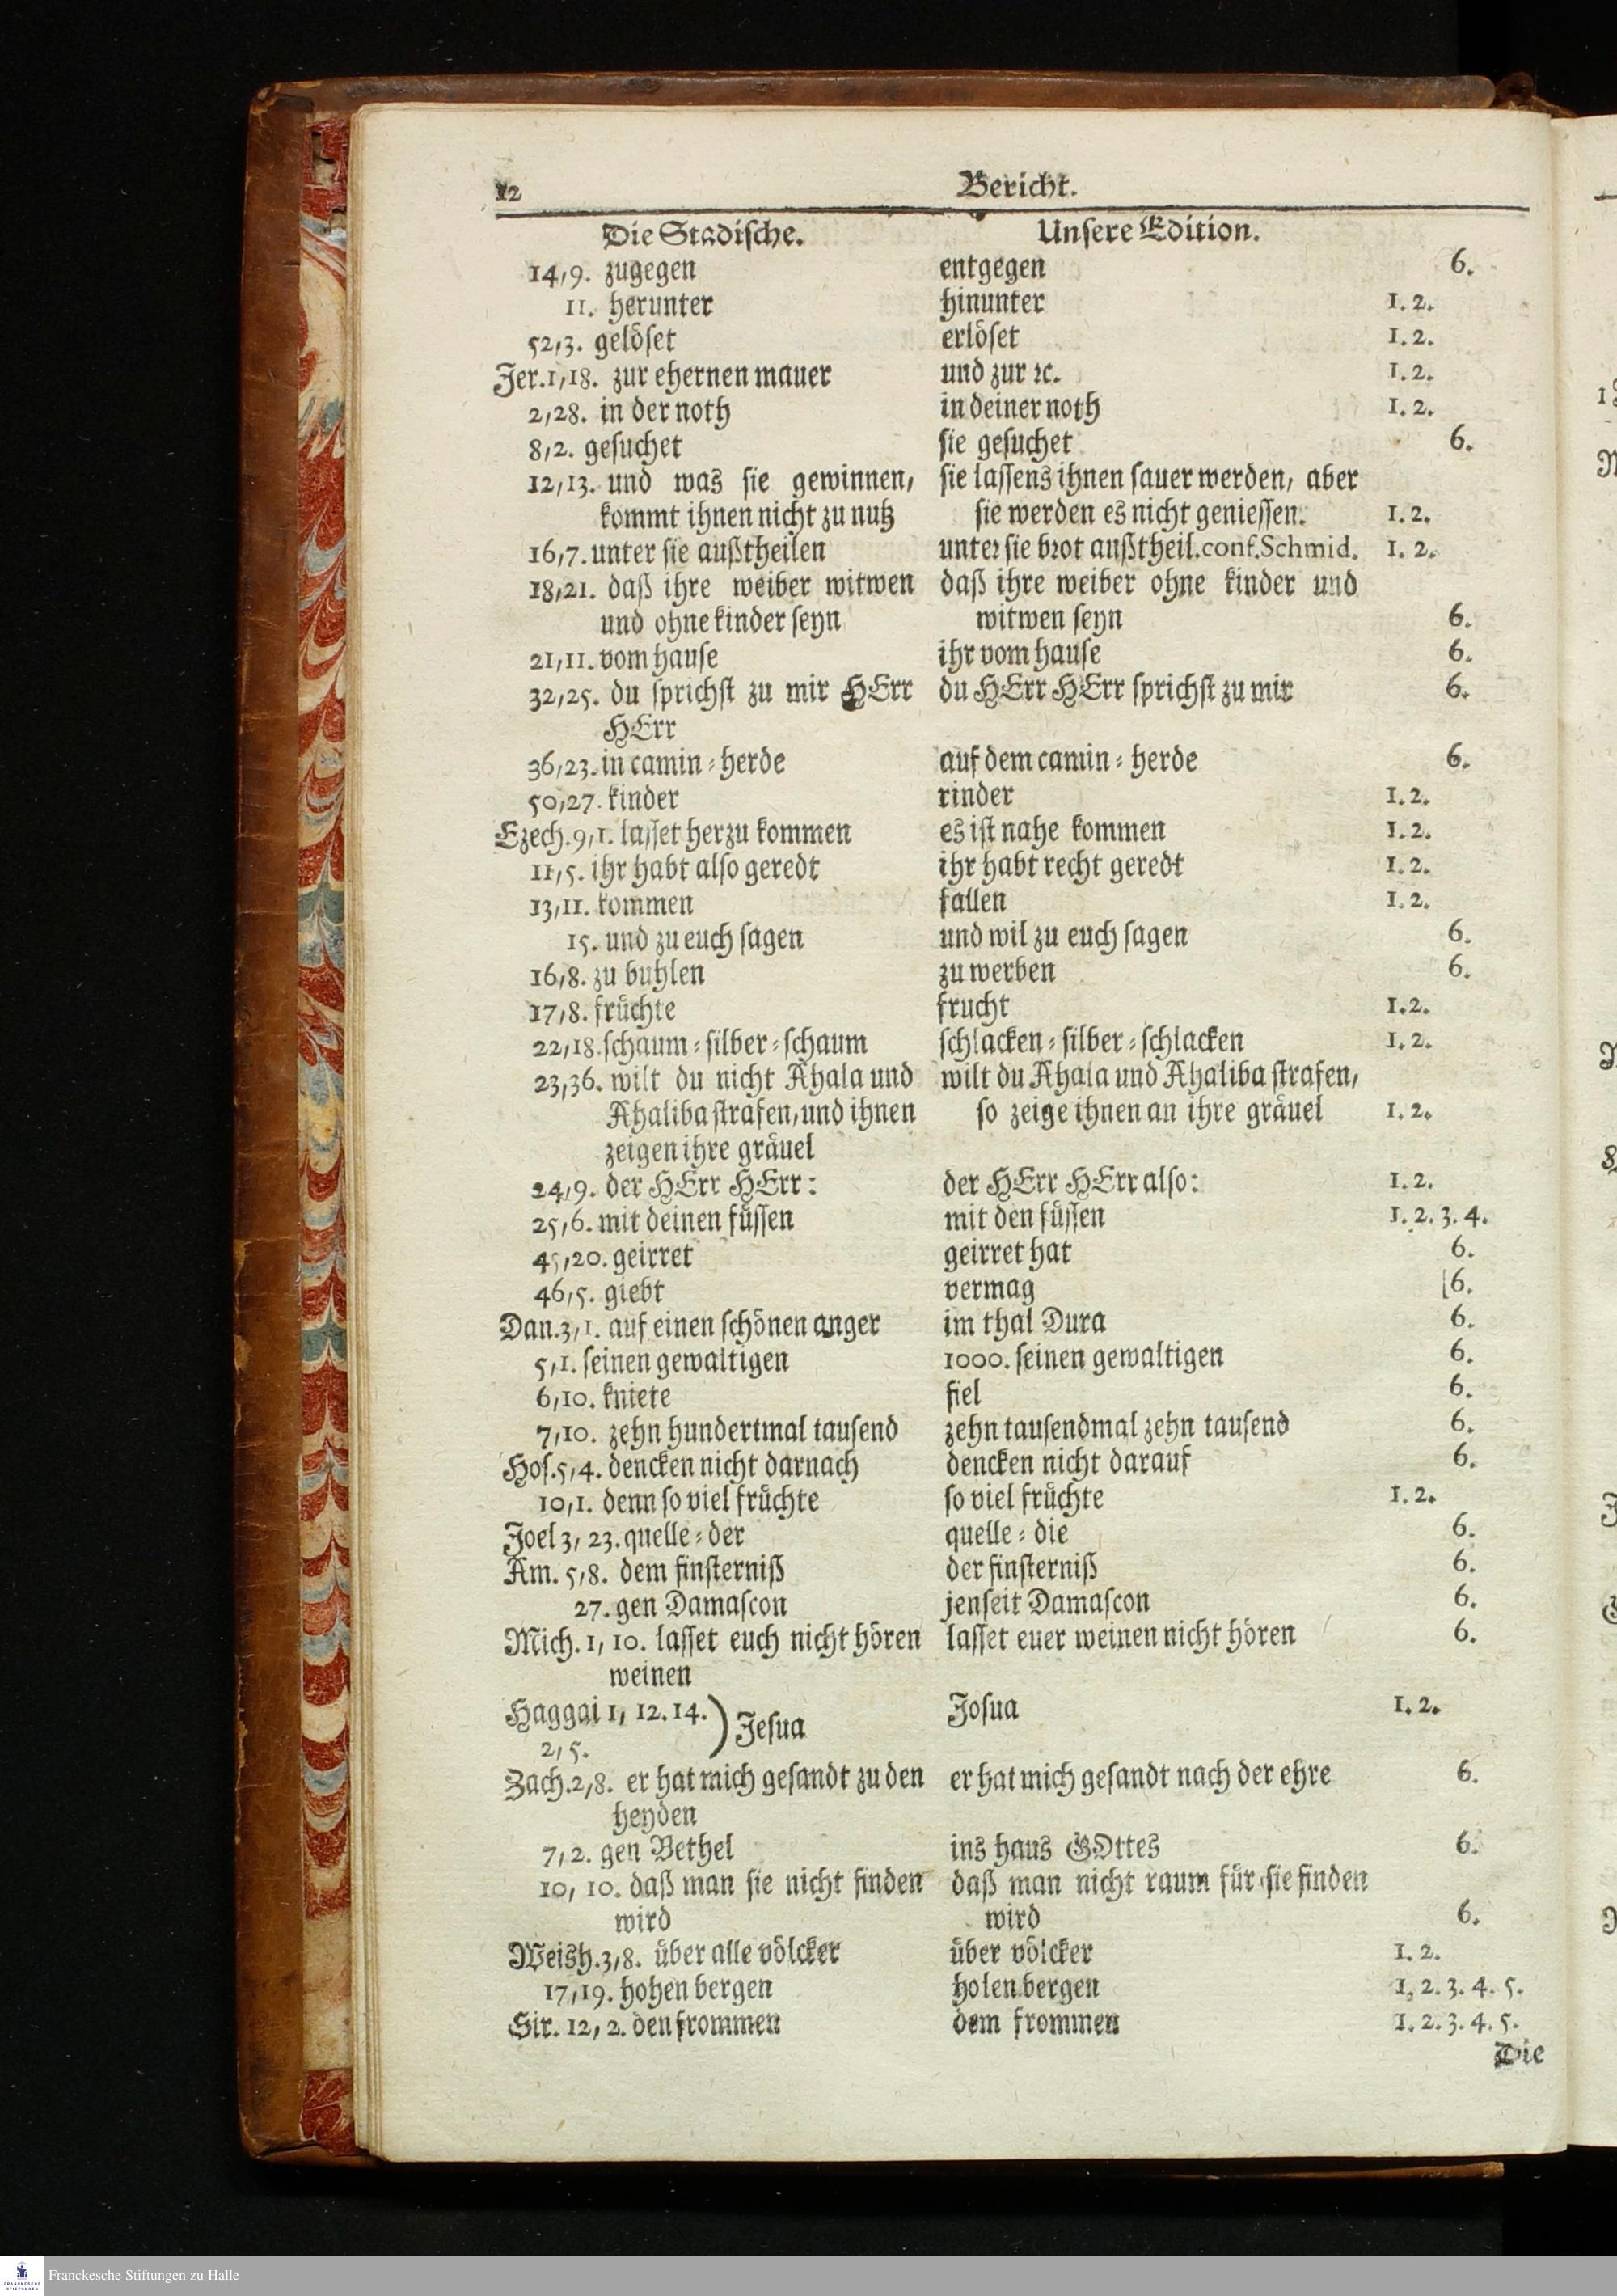 12 Bericht.
Die Stadische. Unsere Edition.
14,9. zugegen entgegen 6.
11. herunter hinunter 1. 2.
52,3. gelöset erlöset 1. 2.
Jer.1,18. zur ehernen mauer und zur ꝛc. 1. 2.
2,28. in der noth in deiner noth 1. 2.
8,2. gesuchet sie gesuchet 6.
12,13. und was sie gewinnen, sie lassens ihnen sauer werden, aber
kommt ihnen nicht zu nutz sie werden es nicht geniessen. 1. 2.
16,7. unter sie außtheilen unter sie brot außtheil. conf. Schmid. 1. 2.
18,21. daß ihre weiber witwen daß ihre weiber ohne kinder und
und ohne kinder seyn witwen seyn 6.
21,11. vom hause ihr vom hause 6.
32,25. du sprichst zu mir HErr du HErr HErr sprichst zu mir 6.
HErr
36,23. in camin-herde auf dem camin-herde 6.
50,27. kinder rinder 1. 2.
Ezech.9,1. lasset herzu kommen es ist nahe kommen 1. 2.
11,5. ihr habt also geredt ihr habt recht geredt 1. 2.
13,11. kommen fallen 1. 2.
15. und zu euch sagen und wil zu euch sagen 6.
16,8. zu buhlen zu werben 6.
17,8. früchte frucht 1. 2.
22,18. schaum-silber-schaum schlacken-silber-schlacken 1. 2.
23,36. wilt du nicht Ahala und wilt du Ahala und Ahaliba strafen,
Ahaliba strafen, und ihnen so zeige ihnen an ihre gräuel 1. 2.
zeigen ihre gräuel
24,9. der HErr HErr: der HErr HErr also: 1. 2.
25,6. mit deinen füssen mit den füssen 1. 2. 3. 4.
45,20. geirret geirret hat 6.
46,5. giebt vermag [6.
Dan.3,1. auf einen schönen anger im thal Dura 6.
5,1. seinen gewaltigen 1000. seinen gewaltigen 6.
6,10. kniete fiel 6.
7,10. zehn hundertmal tausend zehn tausendmal zehn tausend 6.
Hos.5,4. dencken nicht darnach dencken nicht darauf 6.
10,1. denn so viel früchte so viel früchte 1. 2.
Joel 3, 23. quelle-der quelle-die 6.
Am. 5,8. dem finsterniß der finsterniß 6.
27. gen Damascon jenseit Damascon 6.
Mich. 1, 10. lasset euch nicht hören lasset euer weinen nicht hören 6.
weinen
Haggai 1, 12. 14. ) Jesua Josua 1. 2.
2,5.
Zach.2,8. er hat mich gesandt zu den er hat mich gesandt nach der ehre 6.
heyden
7,2. gen Bethel ins haus GOttes 6.
10, 10. daß man sie nicht finden daß man nicht raum für sie finden
wird wird 6.
Weish.3,8. über alle völcker über völcker 1. 2.
17,19. hohen bergen holen bergen 1, 2. 3. 4. 5.
Sir. 12, 2. den frommen dem frommen 1. 2. 3. 4. 5.
Die
Franckesche Stiftungen zu Halle